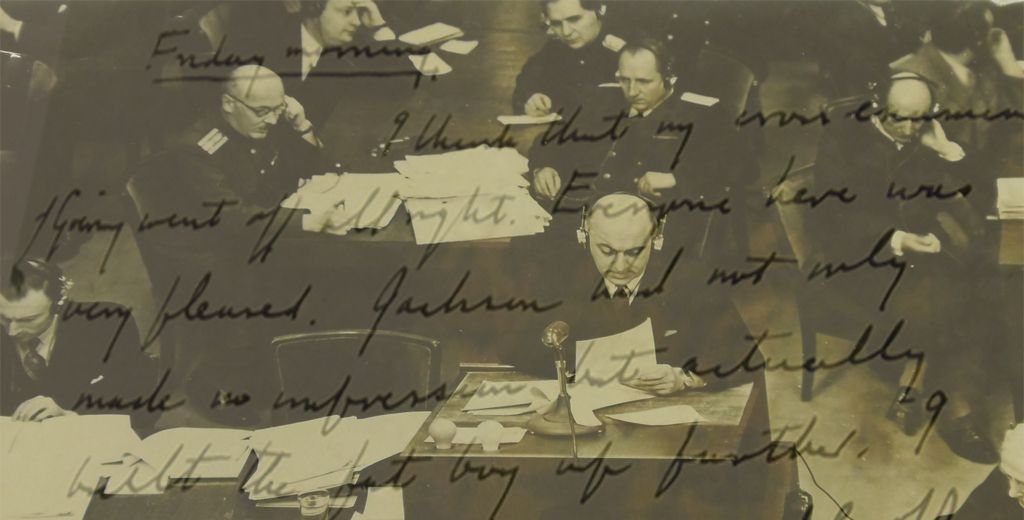 Friday morning,
I think that my cross examin
of Göring went off all right. Everyone here was
very pleased. Jackson had not only
made no impression but actually
built the fat boy up further. I